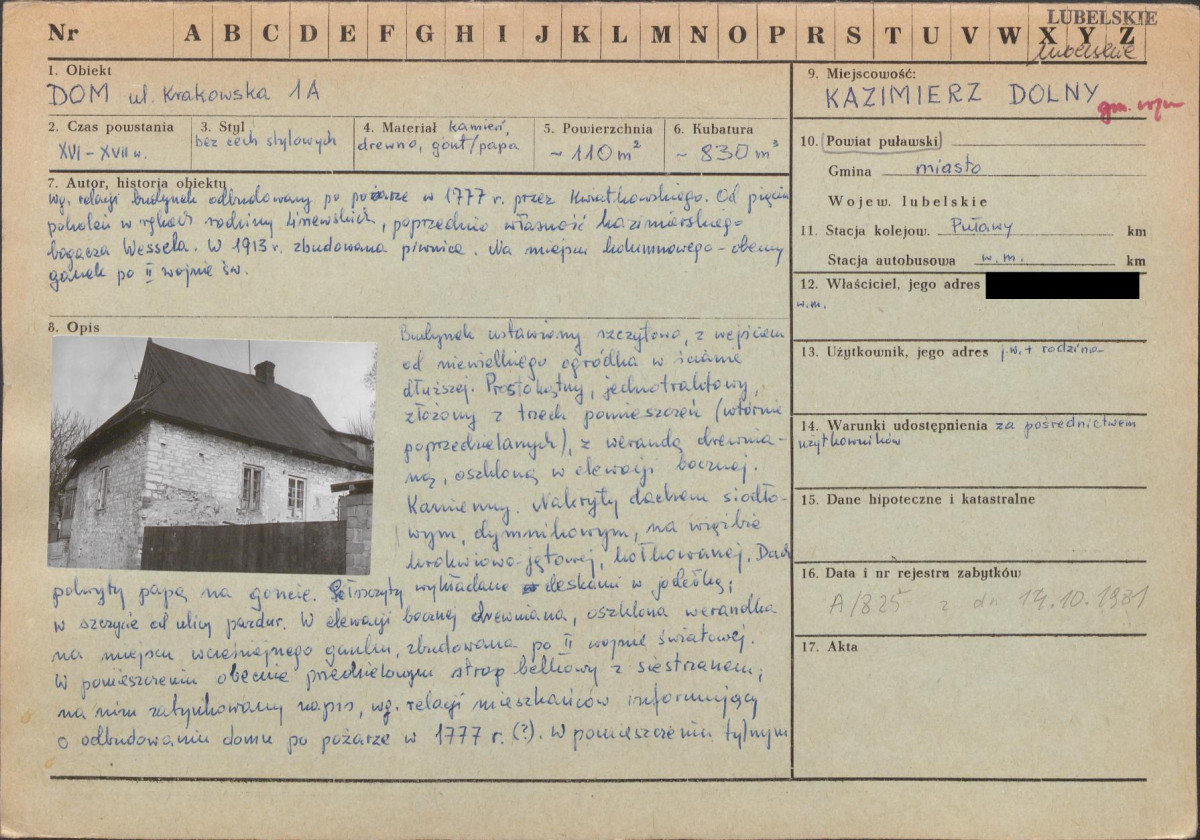 Nr A B C D E F G H I J K L M N O P R S T U V W X Y Z
LUBELSKIE
lubelskie
1. Obiekt
DOM ul. Krakowska 1A
2. Czas powstania
XVI - XVII w.
3. Styl
bez cech stylowych
4. Materiał kamień,
drewno, gont/papa
5. Powierzchnia
~ 110 m²
6. Kubatura
~ 830 m³
7. Autor, historia obiektu
wg. relacji budynek odbudowany po pożarze w 1777 r. przez Kwiatkowskiego. Od pięciu
pokoleń w rękach rodziny Lisiewskich, poprzednio własność kazimierskiego
bogacza Wessela. W 1913 r. zbudowana piwnica. Na miejscu kolumnowego - obecny
ganek po II wojnie św.
8. Opis
Budynek ustawiony szczytowo, z wejściem
od niewielkiego ogródka w ścianie
dłuższej. Prostokątny, jednotraktowy,
złożony z trzech pomieszczeń (wtórnie
poprzedzielanych), z werandą drewnia-
ną, oszkloną w elewacji bocznej.
Kamienny. Nakryty dachem siodło-
wym, dymnikowym, na więźbie
krokwiowo-jętowej, kołkowanej. Dach
pokryty papą na goncie. Półszczyty wykładane deskami w jodełkę;
w szczycie od ulicy pazdur. W elewacji bocznej drewniana, oszklona werandka
na miejscu wcześniejszego ganku, zbudowana po II wojnie światowej.
W pomieszczeniu obecnie przedzielonym strop belkowy z siestrzanem;
na nim zatynkowany napis, wg. relacji mieszkańców informujący
o odbudowaniu domu po pożarze w 1777 r. (?). W pomieszczeniu tylnym
9. Miejscowość:
KAZIMIERZ DOLNY
10. Powiat puławski
Gmina miasto
Wojew. lubelskie
11. Stacja kolejow. Puławy km
Stacja autobusowa w.m. km
12. Właściciel, jego adres
w.m.
13. Użytkownik, jego adres j.w. + rodzina
14. Warunki udostępnienia za pośrednictwem
użytkowników
15. Dane hipoteczne i katastralne
16. Data i nr rejestru zabytków
A/825 z dn 19.10.1981
17. Akta